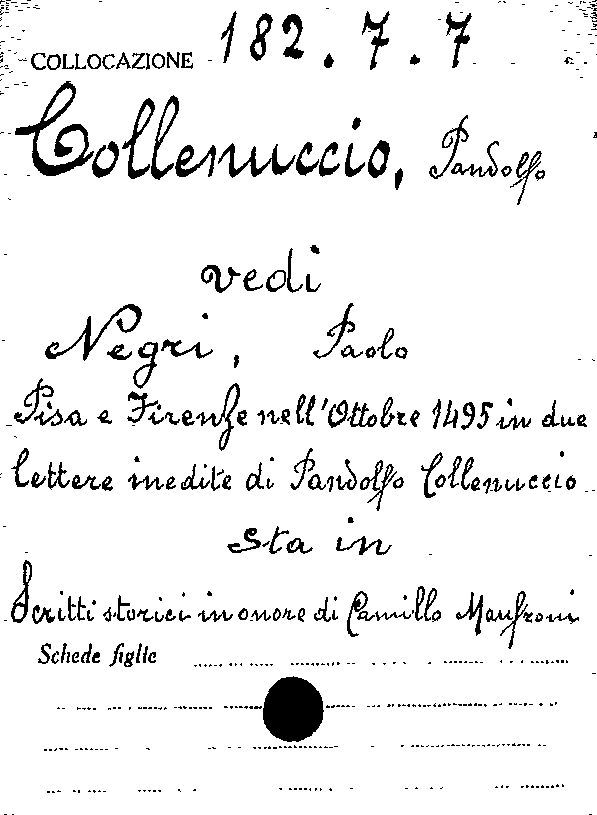 COLLOCAZIONE 182.7.7
Collenuccio, Pandolfo
vedi
Negri, Paolo
Pisa e Firenze nell'Ottobre 1495 in due
lettere inedite di Pandolfo Collenuccio
sta in
Scritti storici in onore di Camillo Manfroni
Schede figlie